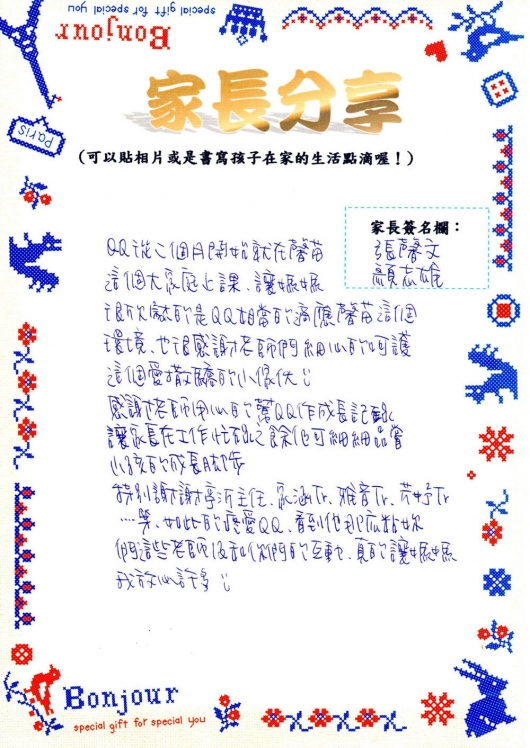 special gift for special you
Bonjour
Paris
家長分享
(可以貼相片或是書寫孩子在家的生活點滴喔!)
家長簽名欄:
張馨文
顏志雄
QQ從二個月開始就在馨苗
這個大家庭上課、讓媽媽
很欣慰的是QQ相當的適應馨苗這個
環境、也很感謝老師們細心的呵護
這個愛撒嬌的小傢伙ü
感謝老師用心的幫QQ作成長記錄
讓家長在工作忙碌之餘也可細細品嘗
小孩的成長腳步
特別謝謝亭沂主任、家涵Tr、雅音Tr、芃妤Tr
…等、如此的疼愛QQ、看到他那麼黏妳
們這些老師及和你們的互動、真的讓媽媽
我放心許多ü
Bonjour
special gift for special you